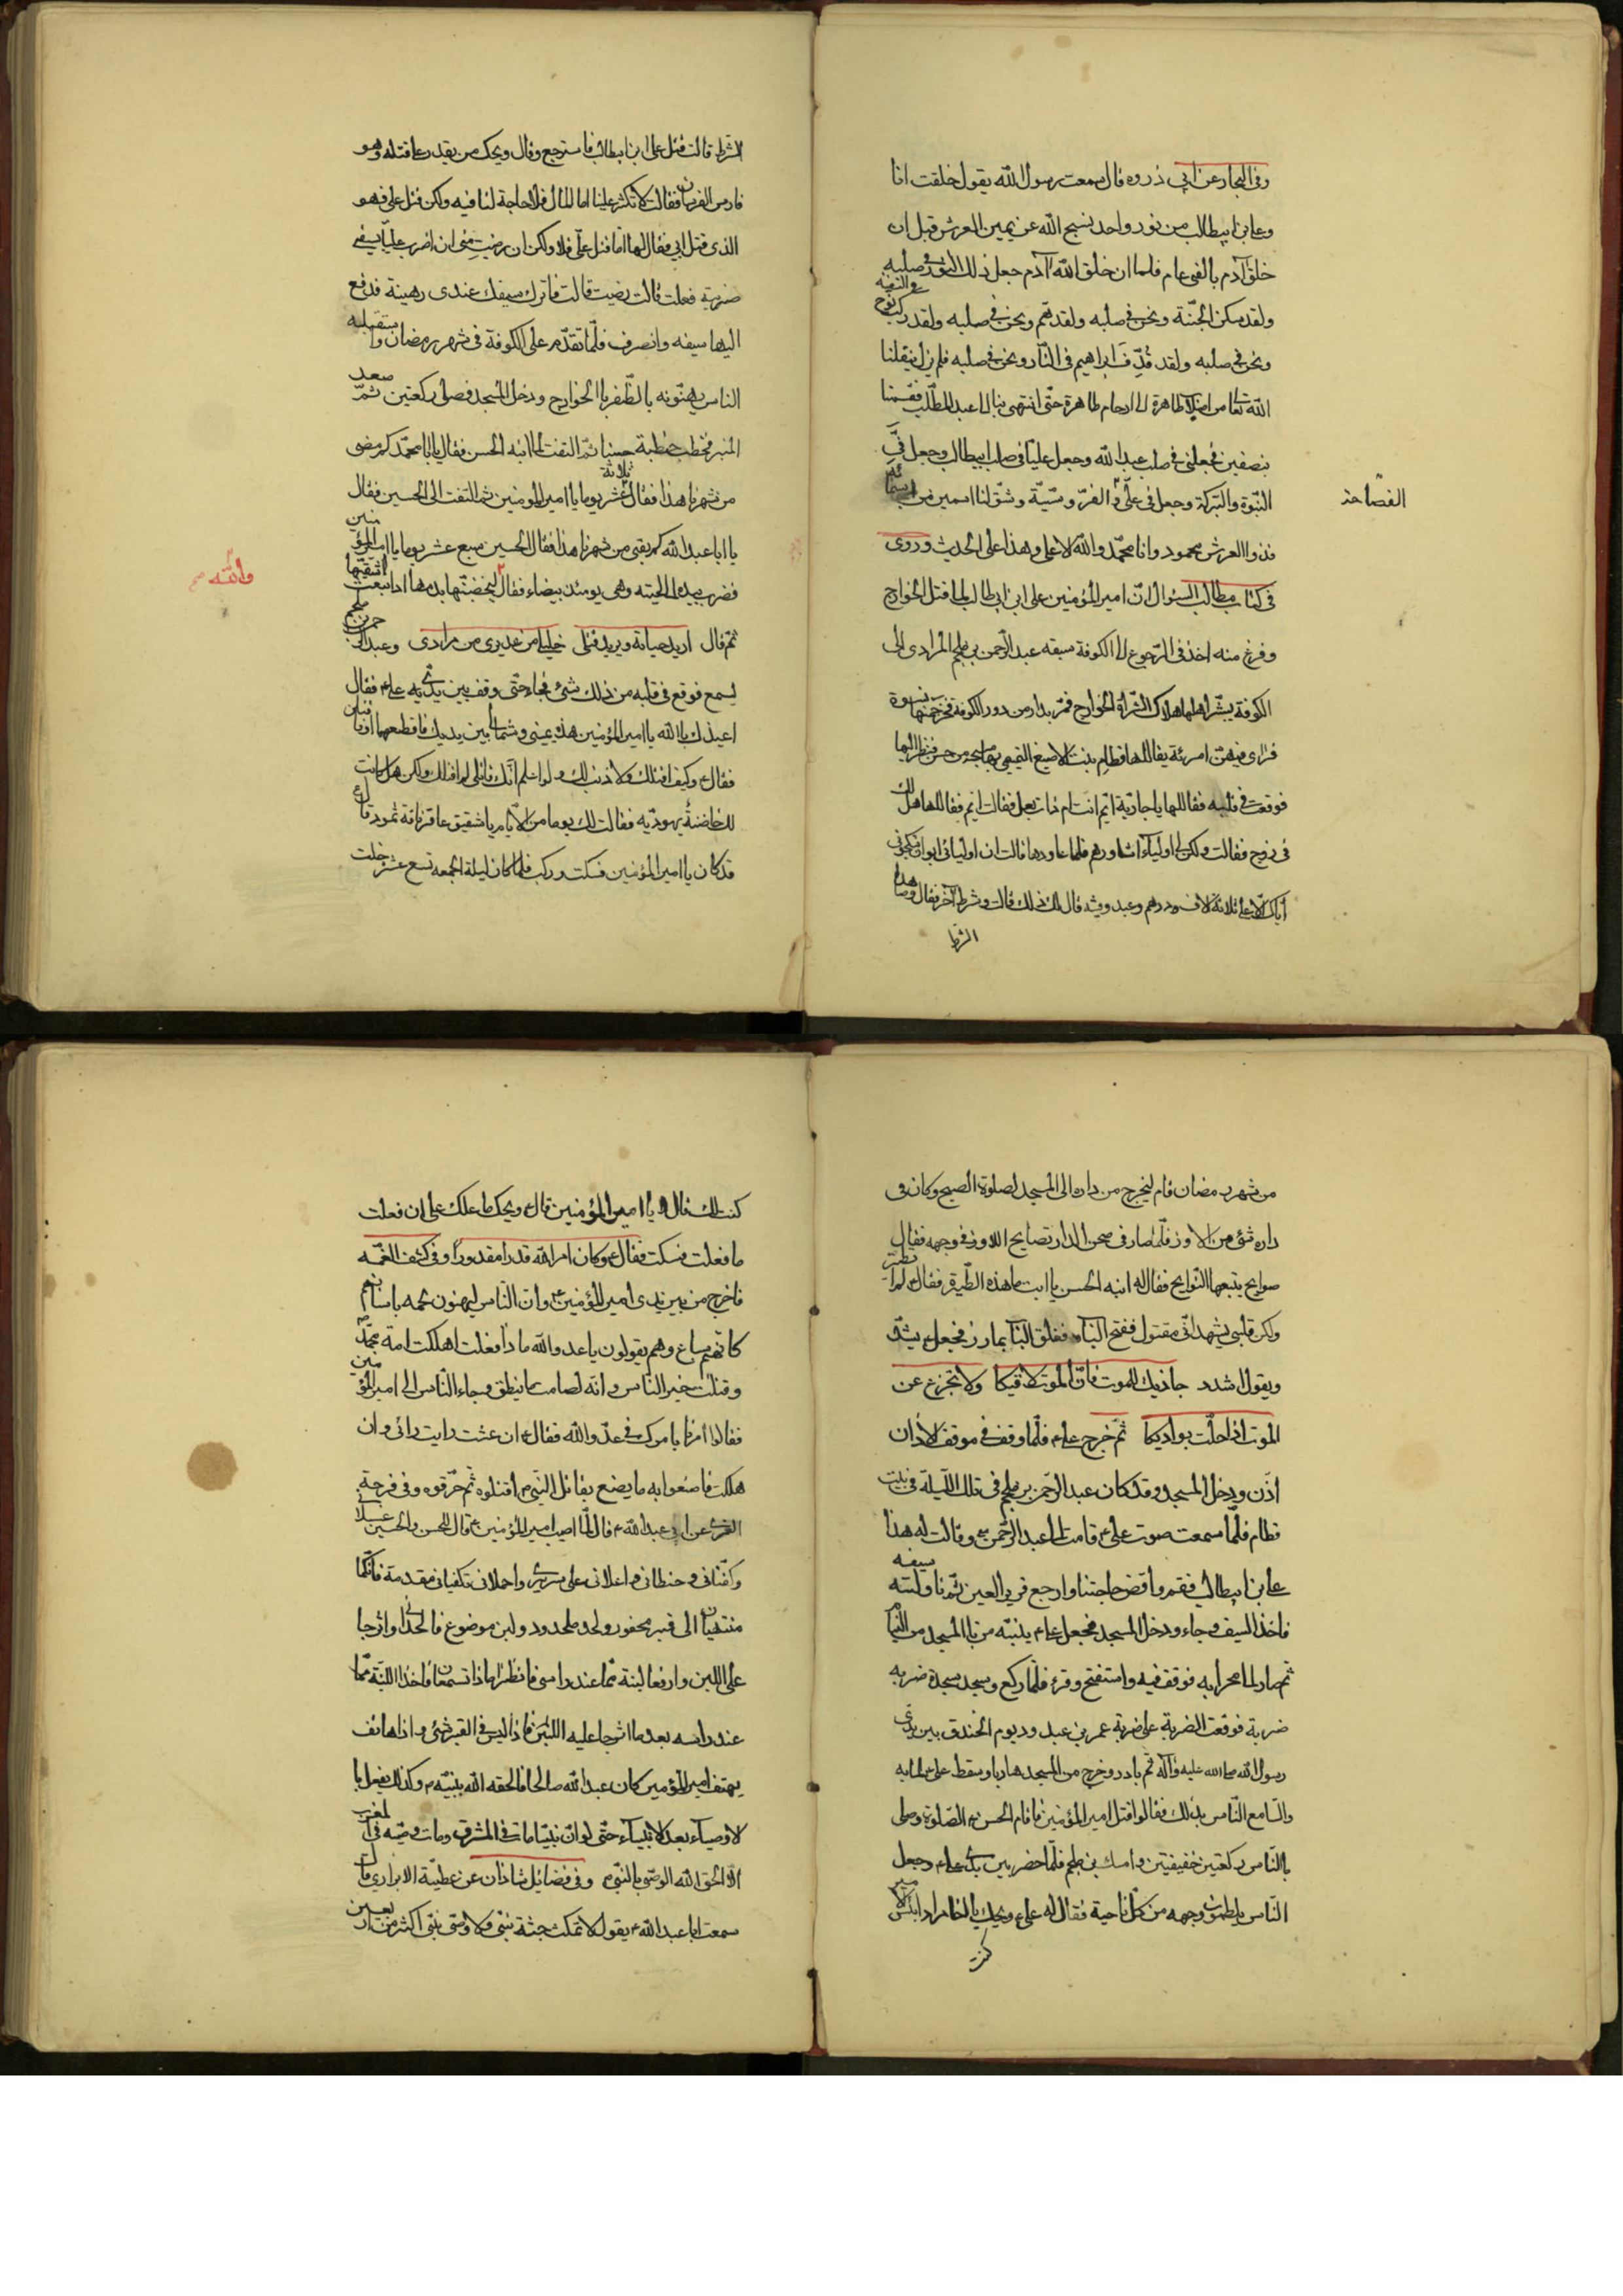 وفى البحار عن ابى ذر ره قال سمعت رسول الله يقول خلقت انا
وعلى بن ابيطالب من نور واحد نسبح الله عن يمين العرش قبل ان
خلق آدم بالفى عام فلما ان خلق الله آدم جعل ذلك النور فى صلبه
ولقد سكن الجنّة ونحن فى صلبه ولقد همّ ونحن فى صلبه ولقد ركب نوح فى السفينة
ونحن فى صلبه ولقد قُذِف ابراهيم فى النّار ونحن فى صلبه فلم يزل ينقلنا
الله تعا من اصلاب طاهرة الى ارحام طاهرة حتّى انتهى بنا الى عبد المطّلب فقسمنا
بنصفين فجعلنى فى صلب عبد الله وجعل عليّا فى صلب ابيطالب وجعل فىّ
النبّوة والبّركة وجعل فى علّى الفصاحة وشقّ لنا اسمين من اسمائه
فذو العرش محمود وانا محمّد والله الاعلى وهذا على الحديث وروى
فى كتاب مطالب السئوال انّ امير المؤمنين على ابن ابى طالب لما قتل الخوارج
وفرغ منه اخذ فى الرّجوع الى الكوفة سبقه عبد الرّحمن بن ملجم المرادى الى
الكوفة يبشّر اهلها بهلاك الشراة الخوارج فمرّ بدار من دور الكوفة فخرج منها نسوة
فراى فيهنّ امرئة يقال لها قطام بنت الاصبغ التميمى بها من حسن فنظر اليها
فوقعت فى قلبه فقال لها يا جارية ايّم انت ام ذات بعل فقالت ايّم فقال لها هل لك
فى زوج فقالت ولكن لى اولياء اشاورهم فلما عاودها قالت ان اوليائى ابوا ان ينكحونى
اياك الّا على ثلاثة آلاف درهم وعبد وقينة قال لك ذلك قالت وشرط آخر فقال وما هذا
الشرط
الشرط قالت قتل على ابن ابيطالب فاسترجع وقال ويحك من يقدر على قتله وهو
فارس الفرسان فقالت لا تكثر علينا اما المال فلا حاجة لنا فيه ولكن قتل على فهو
الذى قتل ابى فقال لها امّا قتل علّى فلا ولكن ان رضيت منّى ان اضرب عليّا بسيفى
ضربة فعلت قالت رضيت قالت فاترك سيفك عندى رهينة فدفع
اليها سيفه وانصرف فلمّا تقدّم على الكوفة فى شهر رمضان واستقبله
الناس يهنّونه بالظّفر بالخوارج ودخل المسجد فصلى ركعتين ثمّ صعد
المنبر فخطب خطبة حسنا ثمّ التفت الى ابنه الحسن فقال يا ابا محمّد كم مضى
من شهرنا هذا فقال ثلاثة عشر يوما يا امير المؤمنين ثم التفت الى الحسين فقال
يا ابا عبد الله كم بقى من شهرنا هذا فقال الحسين سبع عشر يوما يا امير المؤمنين
فضرب بيده الى لحيته وهى يومئذ بيضاء فقال ليخضبنّها بدمها اذا نبعث اشقيها
والله
ثمّ قال اريد حياته ويريد قتلى خليلى من عذيرى من مرادى وعبد الرحمن بن ملجم
يسمع فوقع فى قلبه من ذلك شئ فجاء حتّى وقف بين يدى على فقال
اعيذك بالله يا امير المؤمنين هذه يمينى وشمالى بين يديك فاقطعهما او فاقتلنى
فقال ع وكيف اقتلك ولا ذنب لك ولو اعلم انّك قاتلى لم اقتلك ولكن هل كانت
لك حاضنة يهوديّه فقالت لك يوما من الايّام يا شقيق عاقر ناقة ثمود قال
قد كان يا امير المؤمنين فسكت وركب فلما كان ليلة الجمعه تسع عشر خلت
من شهر رمضان قام ليخرج من داره الى المسجد لصلوة الصبح وكان فى
داره شئ من الاوز فلمّا صار فى صحن الدار تصايح الاوز فى وجهه فقال
صوايح يتبعها النّوايح فقال له ابنه الحسن يا ابت ما هذه الطّيرة فقال لم اتطيّر
ولكن قلبى يشهد انّى مقتول ففتح الباب فعلق الباب بمازر فجعل يشدّ
ويقول اشدد حيازيمك للموت فانّ الموت لاقيكا ولا تجزع عن
الموت اذا حلّت بواديكا ثمّ خرج على فلمّا وقف فى موقف الاذان
اذّن ودخل المسجد وقد كان عبد الرّحمن بن ملجم فى تلك اللّيلة فى بيت
قطام فلمّا سمعت صوت على ع قامت الى عبد الرّحمن وقالت له هذا
على بن ابيطالب فقم واقض حاجتنا وارجع قرير العين ثمّ ناولته سيفه
فاخذ السيف وجاء ودخل المسجد فجعل على ينبّه من بالمسجد من النيام
ثم صار الى محرابه فوقف فيه واستفتح وقرء فلمّا ركع وسجد سجدة ضربه
ضربة فوقعت الضربة على ضربة عمر بن عبد ود يوم الخندق بين يدى
رسول الله صلى الله عليه وآله ثم بادر وخرج من المسجد هاربا وسقط على لما به
والتسامع النّاس بذلك فقالوا قتل امير المؤمنين فاقام الحسن الصّلوة وصلى
بالنّاس ركعتين خفيفتين وامسك بن ملجم فلمّا حضر بين يدى على ع وجعل
النّاس يلطمون وجهه من كلّ ناحية فقال له على ع ويحك يا اخا مراد ابئس الامير
كنت
كنت لك قال لا يا امير المؤمنين قال ويحك ما حملك على ان فعلت
ما فعلت فسكت فقال ع وكان امر الله قدرا مقدورا وفى كشف الغمّه
فاخرج من بين يدى امير المؤمنين وانّ النّاس لينهشون لحمه باسنانهم
كانّهم سباع وهم يقولون يا عدو الله ما ذا فعلت اهلكت امة محمّد
وقتلت خير الناس وانّه لصامت ما ينطق وجاء النّاس الى امير المؤمنين
فقالوا مرنا بامرك فى عدّو الله فقال ع ان عشت رايت رائى وان
هلكت فاصنعوا به ما يصنع بقاتل النّبى اقتلوه ثّم حرّقوه وفى فرحة
الغرى عن ابى عبد الله ع قال لمّا اصيب امير المؤمنين ع قال للحسن والحسين غسلانى
وكفّنانى وحنطانى واحملانى على سريرى واحملانى تكفيان مقدمة فانّكما
منتهيان الى قبر محفور ولحد ملحود ولبن موضوع فالحدانى واشرجا
على اللبن وارفعا لبنة ممّا عند راسى فانظرا ما ذا تسمعان فاخذا اللبّنة ممّا
عند راسه بعد ما اشرجا عليه اللبن فاذا ليس فى القبر شئ واذا هاتف
يهتف امير المؤمنين كان عبد الله صالحا فالحقه الله بنبيّه وكذلك يفعل با
لاوصياء بعد الانبياء حتّى لو انّ نبيّا مات فى المشرق ومات وصيّه فى المغرب
الّا الحق الله الوصّى بالنبّى وفى فضائل شاذان عن عطيّة الابزارى قال
سمعت ابا عبد الله ع يقول لا تمكث جثة نبّى ولا وصّى نبّى اكثر من اربعين